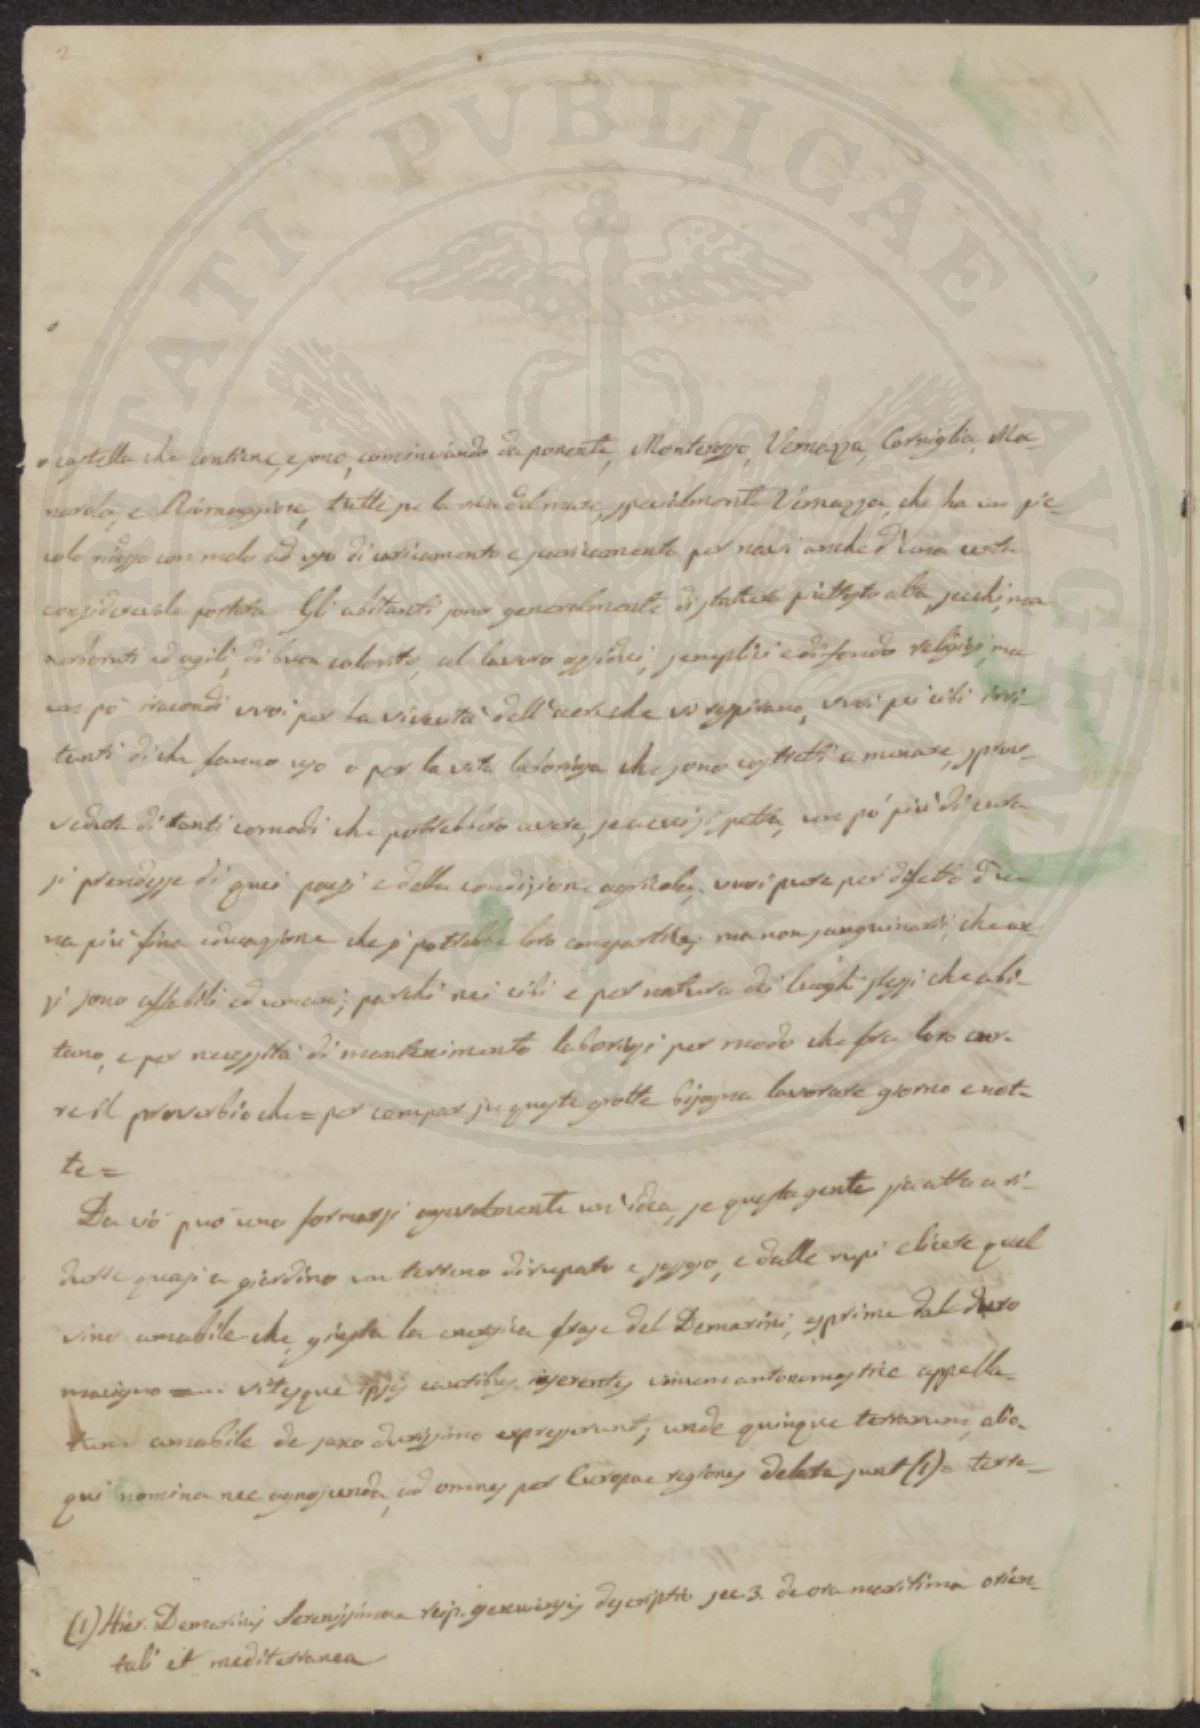 2
o castella che contiene, e sono, cominciando da ponente, Monterosso, Vernazza, Corniglia, Ma-
narola, e Riomaggiore, tutti su la riva del mare, specialmente Vernazza, che ha un pic-
colo ridosso con molo ad uso di caricamento e scaricamento per navi anche d'una certa
considerevole portata. Gli abitanti sono generalmente di statura piuttosto alta, secchi, ma
nerboruti ed agili, di buon colorito, al lavoro assidui, semplici e di fondo religiosi, ma
un pò iracondi vuoi per la vivacità dell'aere che vi respirano, vuoi pei cibi irri-
tanti di che fanno uso o per la vita laboriosa che sono costretti a menare, sprov-
veduta di tanti comodi che potrebbero avere, se a cui si spetta, un pò più di cura
si prendesse di quei paesi e della condizione agricola; vuoi pure per difetto d'u-
na più fina educazione che si potrebbe loro compartire; ma non sanguinarii, che an-
zi sono affabili ed umani; parchi nei cibi e per natura dei luoghi stessi che abi-
tano, e per necessità di mantenimento laboriosi per modo che fra loro cor-
re il proverbio che = per campar su queste grotte bisogna lavorare giorno e not-
te =
Da ciò può uno formarsi agevolmente un'idea, se questa gente sia atta a ri-
durre quasi a giardino un terreno dirupato e sassoso, e dalle rupi elicere quel
vino amabile che, giusta la energica frase del Demarini, esprime dal duro
macigno = ... vitesque ipsis cautibus inserentes vinum antonomastice appella-
tum amabile de saxo durissimo expresserunt; unde quinque terrarum, alio-
qui nomina nec agnoscenda, ad omnes per Europae regiones delata sunt (1) = terre-
(1) Hier. Demarinis Serenissimae reip. genuensis descriptio sec. 3. de ora maritima orien-
tali et mediterranea
PVBLICAE